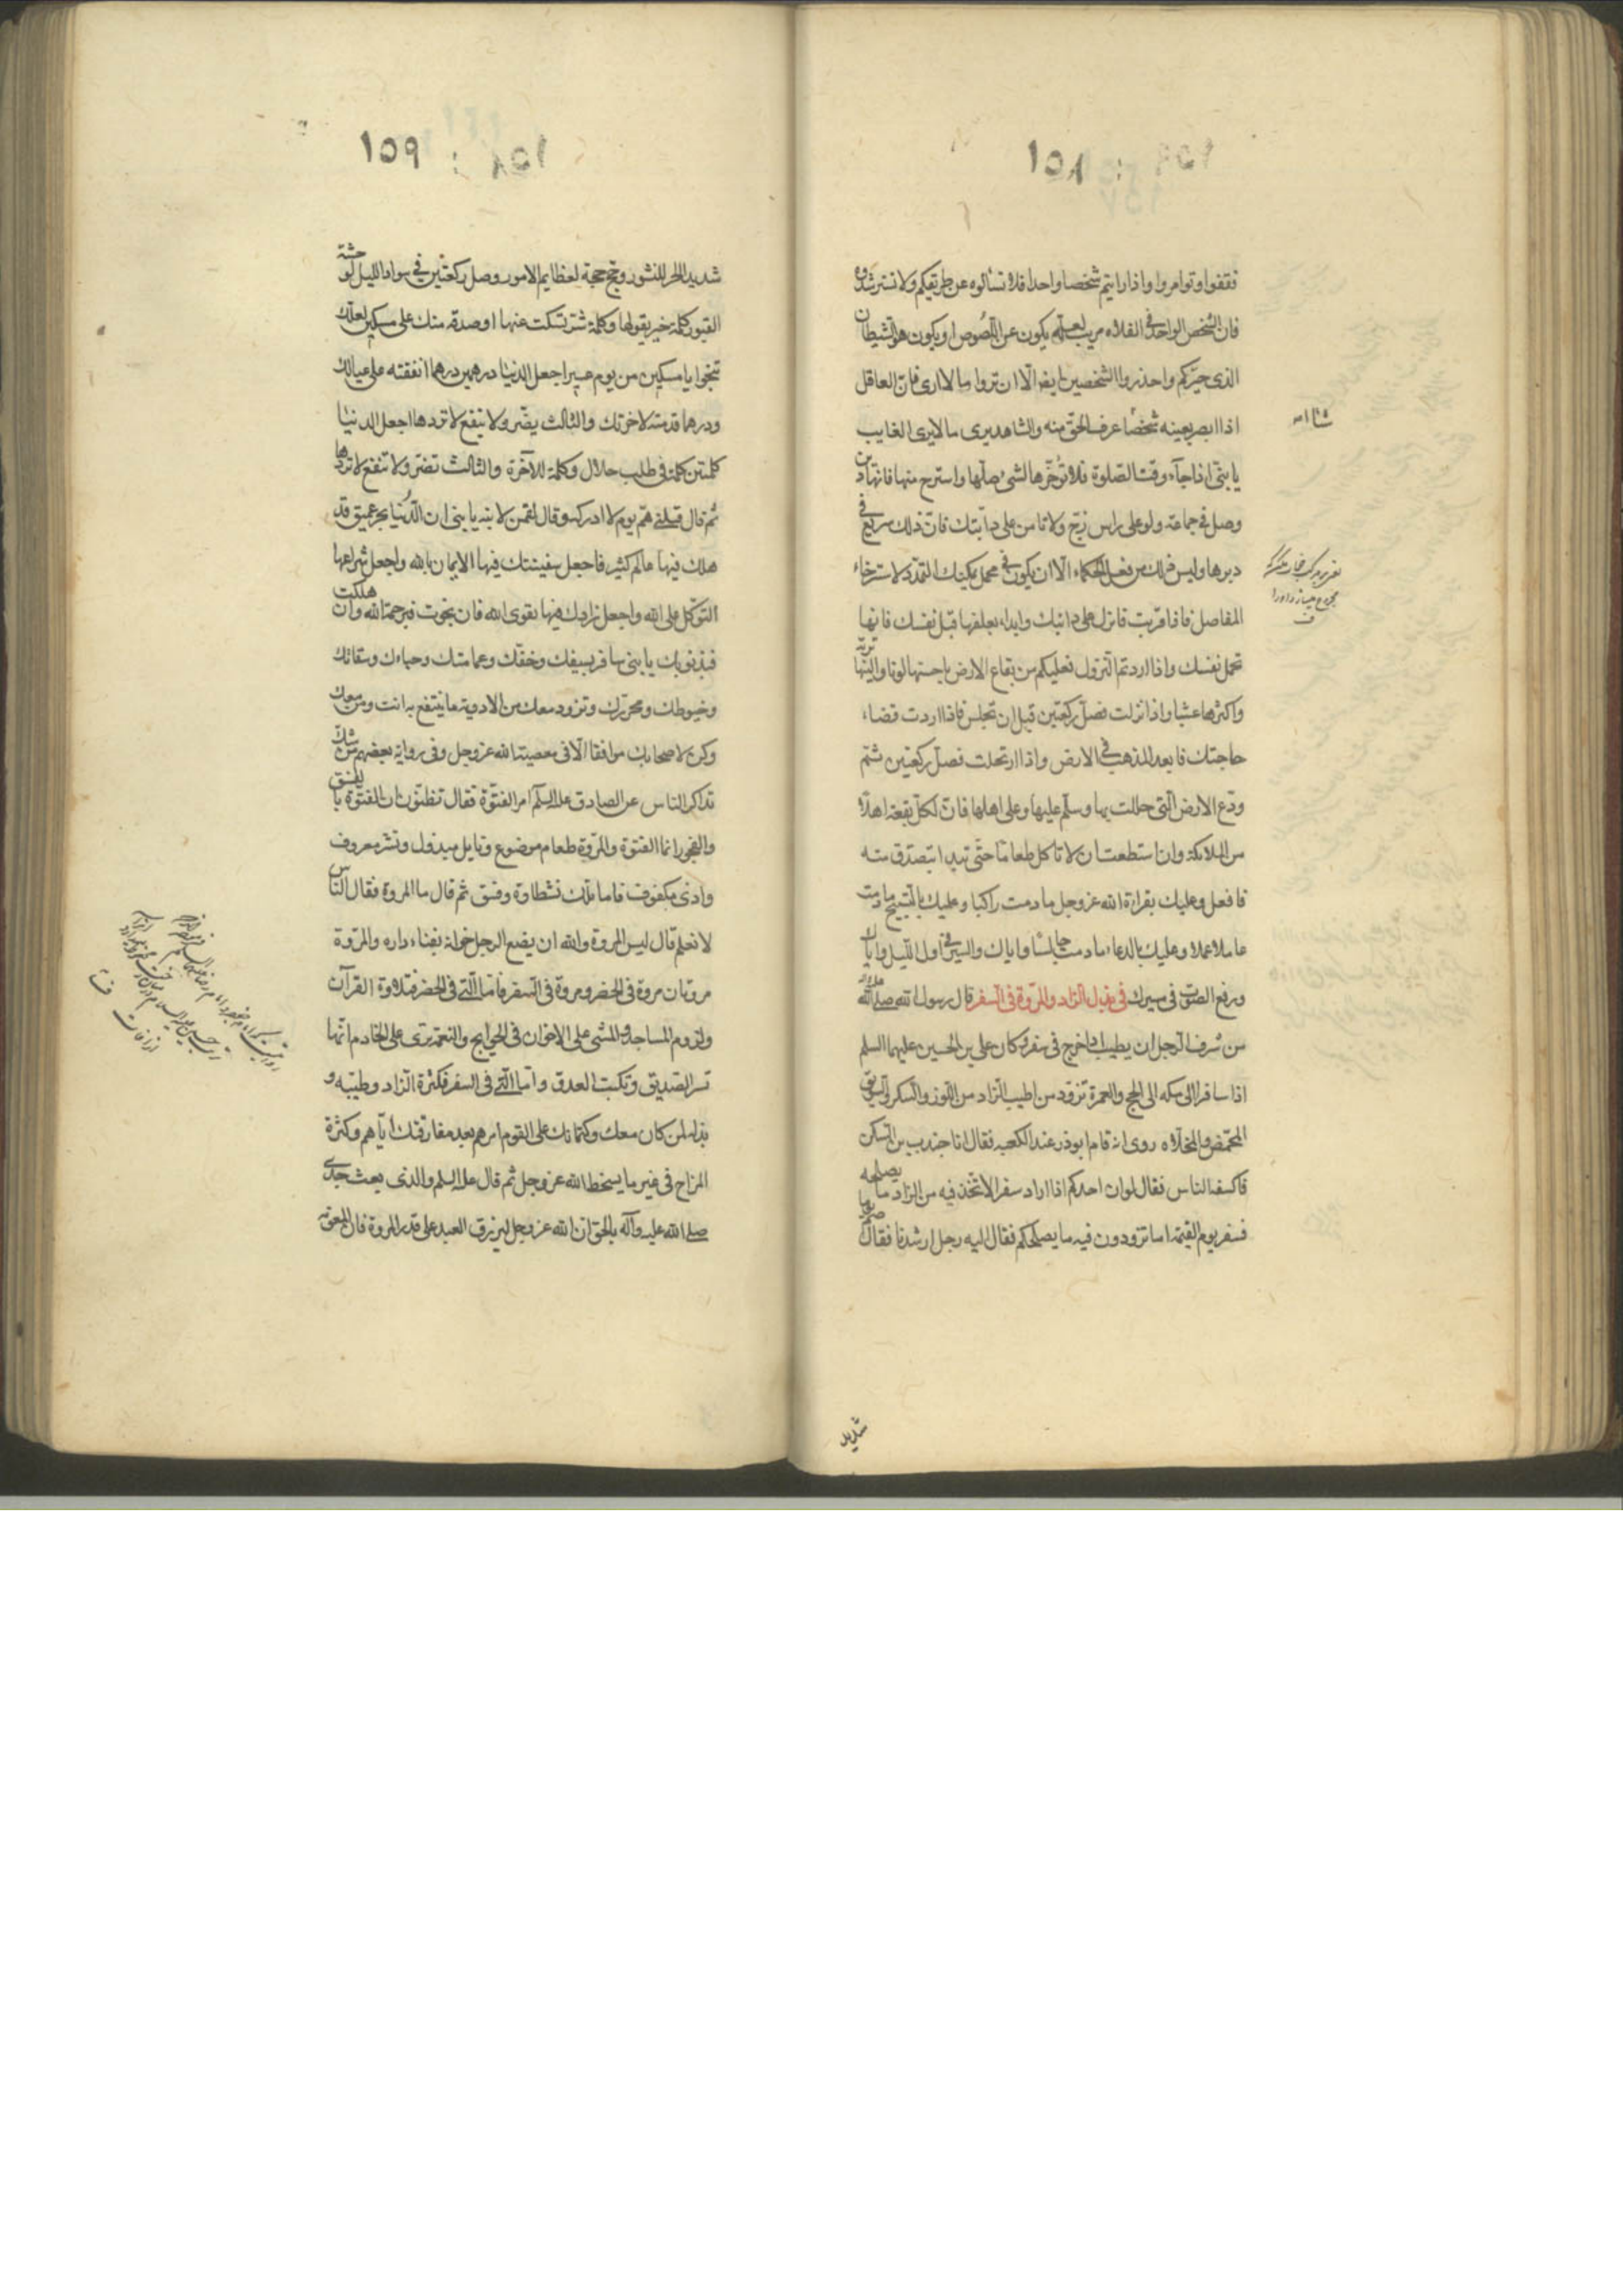 ١٥٨
فقفوا وتوامروا واذا رايتم شخصا واحدا فلا تسألوه عن طريقكم ولا تسترشدوه
فان الشخص الواحد فى الفلاه مريب لعله يكون عن اللصوص او يكون هو الشيطان
الذى حيّركم واحذروا الشخصين ايضا الّا ان تروا ما لا ارى فان العاقل
اذا ابصر بعينه شخصًا عرف الحق منه والشاهد يرى ما لا يرى الغايب
يا بنىّ اذا جآء وقت الصلوة فلا تؤخّرها لشئ صلّها واسترح منها فانها دين
وصل فى جماعة ولو على راس زجّ ولا تنامن على دابّتك فان ذلك سريع فى
دبرها وليس ذلك من فعل الحكماء الّا ان يكون فى محمل يمكنك التمدد لاسترخاء
المفاصل فاذا قربت فانزل على دابتك وابداء بعلفها قبل نفسك فانها
تحمل نفسك واذا اردتم النزول فعليكم من بقاع الارض باحسنها لونا والينها تربة
واكثرها عشبا واذا نزلت فصلّ ركعتين قبل ان تجلس فاذا اردت قضاء
حاجتك فابعد المذهب فى الارض واذا ارتحلت فصلّ ركعتين ثم
ودّع الارض الّتى حللت بها وسلّم عليها وعلى اهلها فان لكلّ بقعة اهلًا
من الملائكة وان استطعت ان لا تاكل طعامًا حتّى تبدا تتصدق منه
فافعل وعليك بقراءة الله عز وجل ما دمت راكبا وعليك بالتسبيح ما دمت
عاملا عملا وعليك بالدعاء ما دمت جالسًا واياك والسير فى اول الليل واياك
ورفع الصوت فى سيرك فى بذل الزاد والمروّة فى السفر قال رسول الله صلى الله عليه وآله
من شرف الرجل ان يطيب زاده اذا خرج فى سفر وكان على بن الحسين عليهما السلم
اذا سافر الى مكه الى الحج والعمرة تزود من اطيب الزاد من اللوز والسكر والسويق
المحمّض والمحلّاه روى انه قام ابوذر عند الكعبه فقال انا جندب بن السكن
فاكتنفه الناس فقال لوان احدكم اذا اراد سفرا لاتّخذ فيه من الزاد ما يصلحه
فسفر يوم القيمة اما تزودون فيه ما يصلحكم فقال اليه رجل ارشدنا فقال صم يوما
شديد
١٥٩
شديد الحر للنشور وحج حجة لعظايم الامور وصل ركعتين فى سواد الليل لوحشة
القبور كلمة خير يقولها وكلمة شرّ تسكت عنها او صدقه منك على مسكين لعلّك
تنجوا يا مسكين من يوم عسير اجعل الدنيا درهمين درهما انفقته على عيالك
ودرهما قدمته لاخرتك والثالث يضّر ولا ينفع لا تردها اجعل الدنيا
كلمتين كلمة فى طلب حلال وكلمة للآخرة والثالث تضرّ ولا تنفع لا تردها
ثم قال قتلنى همّ يوم لا ادركه وقال لقمن لابنه يا بنى ان الدّنيا بحر عميق قد
هلك فيها عالم كثير فاجعل سفينتك فيها الايمان بالله واجعل شراعها
التوكل على الله واجعل زادك فيها تقوى الله فان نجوت فبرحمة الله وان هلكت
فبذنوبك يا بنى سافر بسيفك وخفك وعمامتك وحباءك وسقائك
وخيوطك ومخرزك وتزود معك من الادوية ما ينتفع به انت ومن معك
وكن لاصحابك موافقا الّا فى معصية الله عز وجل وفى رواية بعضهم
تذاكر الناس عن الصادق عليه السلم امر الفتوّة فقال تظنون ان الفتوّة بالفسق
والفجور انما الفتوة والمروّة طعام موضوع ونايل مبذول ونشر معروف
واذى مكفوف فاما تلك فشطارة وفسق ثم قال ما المروة فقال الناس
لا نعلم قال ليس المروة والله ان يضع الرجل خوانه بفناء داره والمروّة
مروتان مروة فى الحضر ومروة فى السفر فامّا الّتى فى الحضر فتلاوة القرآن
ولزوم المساجد والمشى على الاخوان فى الحوايج والنعمة ترى على الخادم انّها
تسر الصديق وتكبت العدو وامّا الّتى فى السفر فكثرة الزاد وطيبه و
بذله لمن كان معك وكتمانك على القوم امرهم بعد مفارقتك ايّاهم وكثرة
المزاح فى غير ما يسخط الله عز وجل ثم قال عليه السلم والذى بعث جدى
صلى الله عليه وآله بالحق ان الله عز وجل ليرزق العبد على قدر المروة فان المعونة